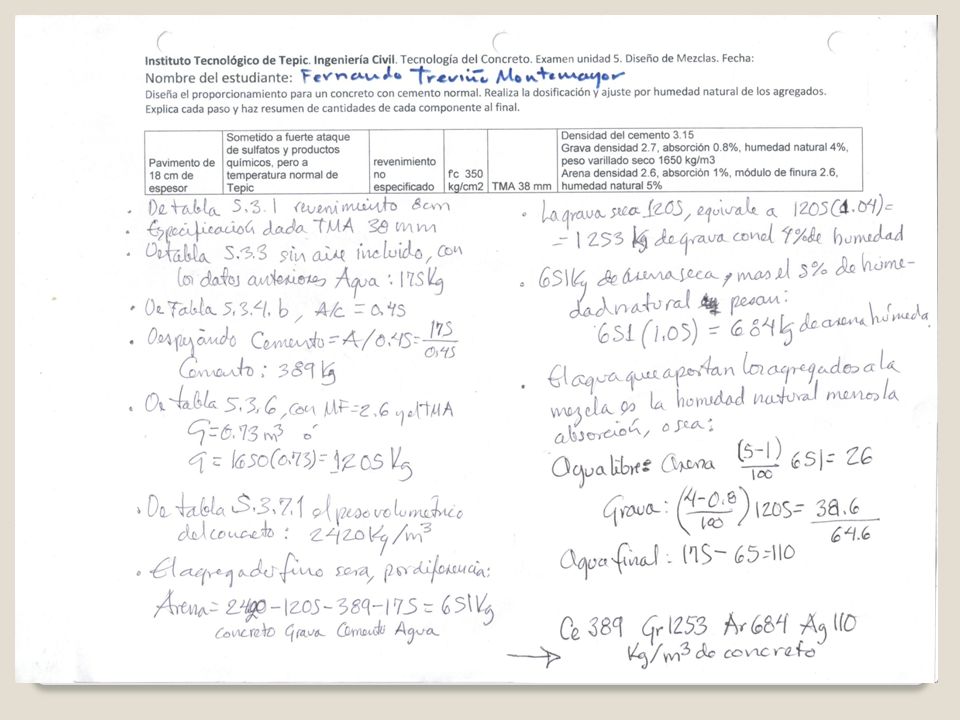 Instituto Tecnológico de Tepic. Ingeniería Civil. Tecnología del Concreto. Examen unidad 5. Diseño de Mezclas. Fecha:
Nombre del estudiante: Fernando Treviño Montemayor
Diseña el proporcionamiento para un concreto con cemento normal. Realiza la dosificación y ajuste por humedad natural de los agregados.
Explica cada paso y haz resumen de cantidades de cada componente al final.
Pavimento de
18 cm de
espesor
Sometido a fuerte ataque
de sulfatos y productos
químicos, pero a
temperatura normal de
Tepic
revenimiento
no
especificado
f'c 350
kg/cm2
TMA 38 mm
Densidad del cemento 3.15
Grava densidad 2.7, absorción 0.8%, humedad natural 4%,
peso varillado seco 1650 kg/m3
Arena densidad 2.6, absorción 1%, módulo de finura 2.6,
humedad natural 5%
. De tabla 5.3.1 revenimiento 8cm
. Especificación dada TMA 38 mm
. De tabla 5.3.3 sin aire incluido, con
los datos anteriores Agua: 175Kg
. De Tabla 5.3.4.b, A/c = 0.45
. Despejando Cemento = A/0.45 = 175/0.45
Cemento: 389 Kg
. De tabla 5.3.6, con MF=2.6 y el TMA
G=0.73 m³ ó
G = 1650(0.73) = 1205 Kg
. De tabla 5.3.7.1 el peso volumétrico
del concreto: 2420 Kg/m³
. El agregado fino sera, por diferencia:
Arena = 2420 - 1205 - 389 - 175 = 651 Kg
Concreto Grava Cemento Agua
. La grava seca 1205, equivale a 1205(1.04)=
= 1253 Kg de grava con el 4% de humedad
. 651 Kg de arena seca, mas el 5% de hume-
dad natural pesan:
651 (1.05) = 684 kg de arena húmeda.
. El agua que aportan los agregados a la
mezcla es la humedad natural menos la
absorción, o sea:
Agua libre: Arena (5-1)/100 651 = 26
Grava: (4-0.8/100) 1205 = 38.6
64.6
Agua final: 175 - 65 = 110
Ce 389 Gr 1253 Ar 684 Ag 110
Kg/m³ de concreto